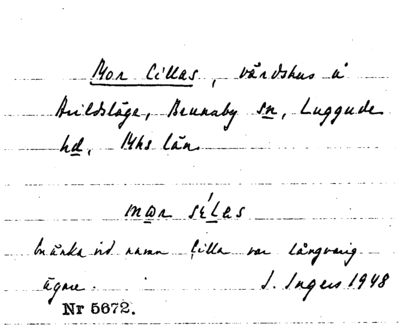 Mor Cillas, värdshus å
Arildsläge, Brunnaby sn, Luggude
hd, Mhs län
mωr sílas
En änka vid namn Cilla var långvarig
ägare. I. Ingers 1948
Nr 5672.